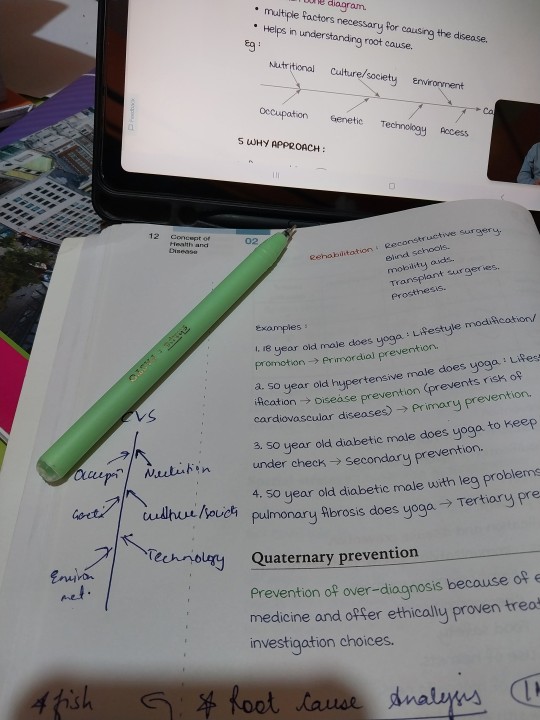 bone diagram.
• multiple factors necessary for causing the disease.
• Helps in understanding root cause.
Eg:
Nutritional Culture/society Environment
Ca
Occupation Genetic Technology Access
5 WHY APPROACH:
12 Concept of
Health and
Disease
02
Rehabilitation: Reconstructive surgery.
Blind schools.
mobility aids.
Transplant surgeries.
Prosthesis.
Examples:
1. 18 year old male does yoga: Lifestyle modification/
promotion → Primordial prevention.
2. 50 year old hypertensive male does yoga: Lifes
ification → Disease prevention (prevents risk of
cardiovascular diseases) → Primary prevention.
3. 50 year old diabetic male does yoga to keep
under check → Secondary prevention.
4. 50 year old diabetic male with leg problems
pulmonary fibrosis does yoga → Tertiary pre
CVS
Nutrition
culture/
Technology
Environ
Quaternary prevention
Prevention of over-diagnosis because of e
medicine and offer ethically proven treat
investigation choices.
*fish * Root Cause Analysis